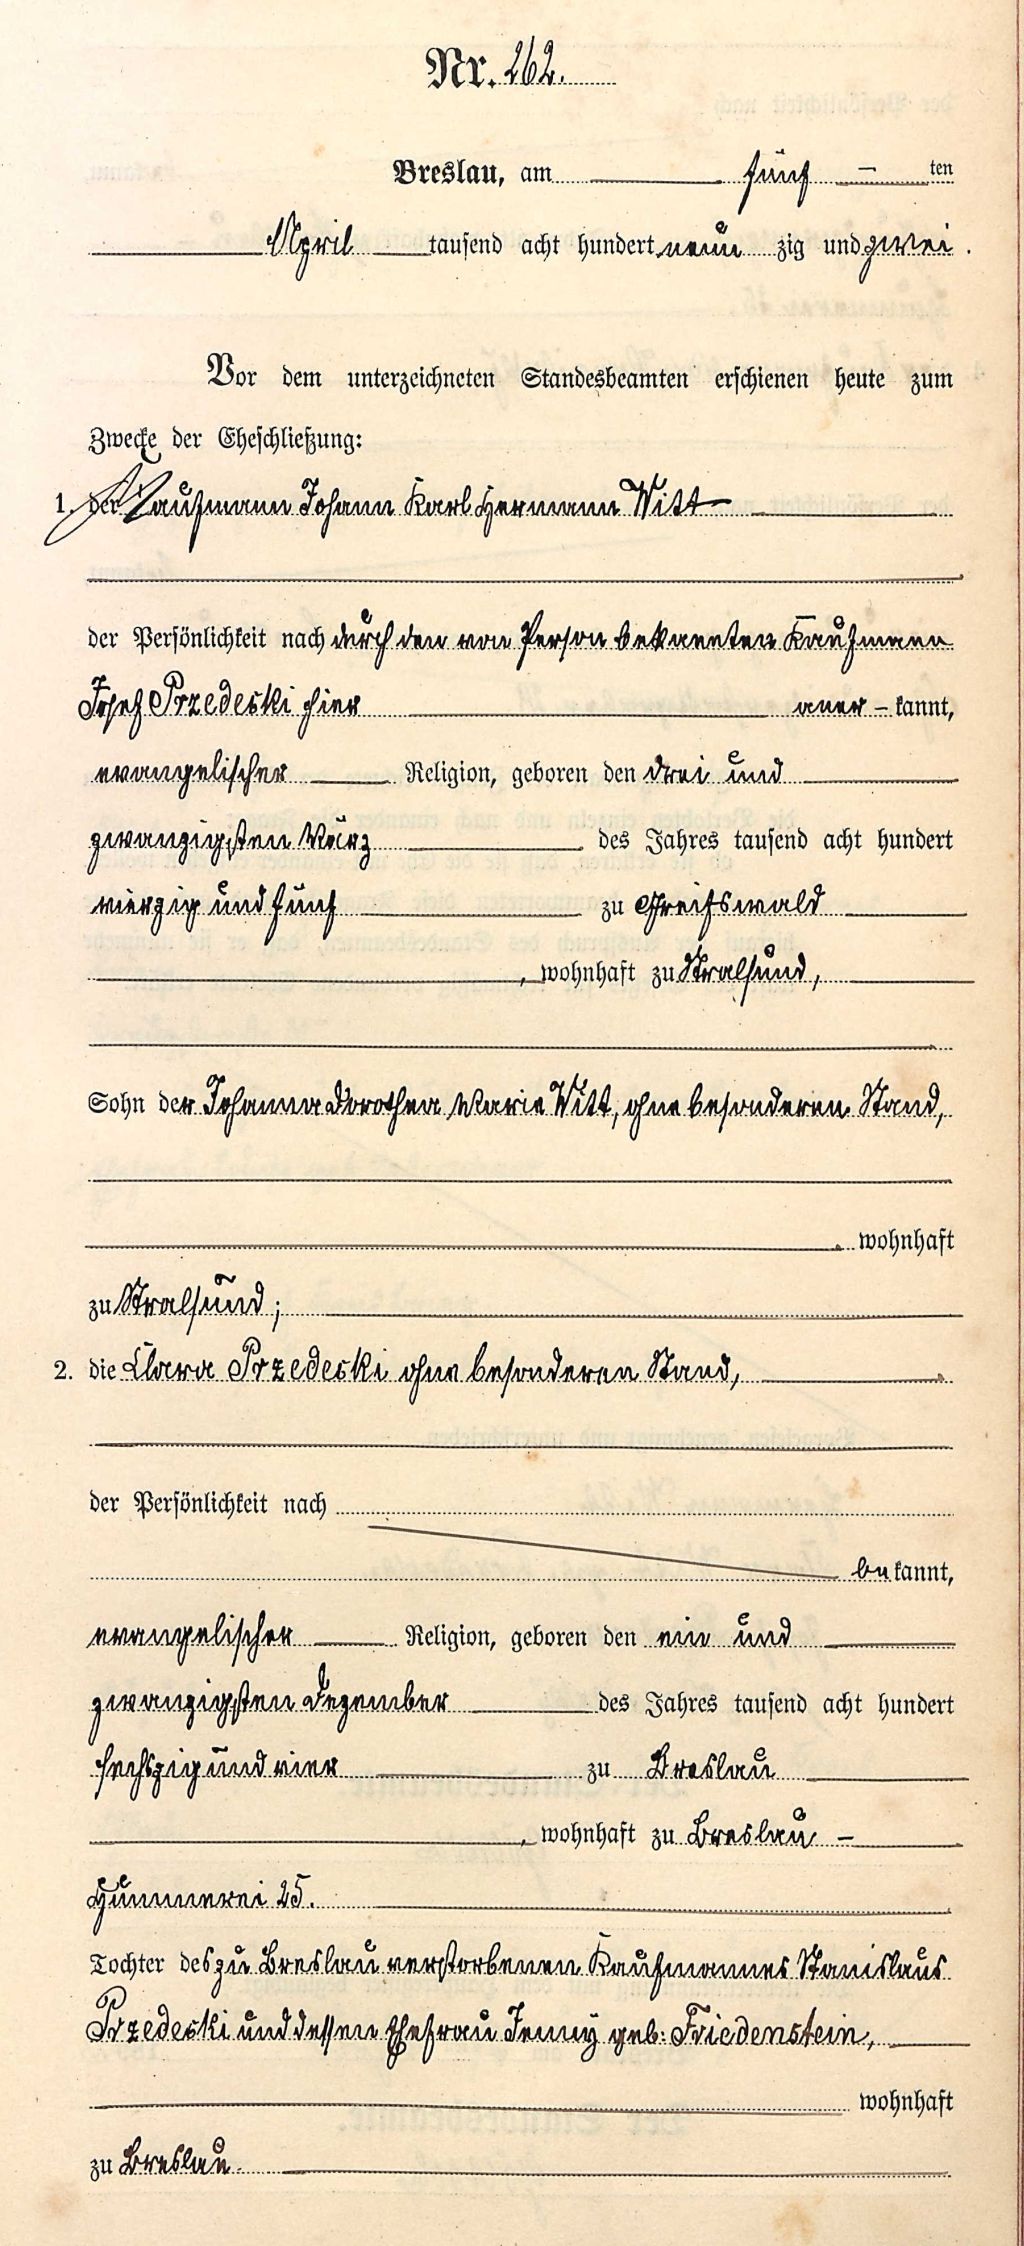 Nr. 262.
Breslau, am fünf ten
April tausend acht hundert neun zig und zwei.
Vor dem unterzeichneten Standesbeamten erschienen heute zum
Zwecke der Eheschließung:
1. der Kaufmann Johann Karl Hermann Witt
der Persönlichkeit nach durch den von Person bekannten Kaufmann
Josef Przedecki hier aner-kannt,
evangelischer Religion, geboren den drei und
zwanzigsten März des Jahres tausend acht hundert
vierzig und fünf zu Greifswald
, wohnhaft zu Stralsund,
Sohn der Johanna Dorothea Marie Witt, ohne besonderen Stand,
wohnhaft
zu Stralsund;
2. die Clara Przedecki ohne besonderen Stand,
der Persönlichkeit nach
be kannt,
evangelischer Religion, geboren den ein und
zwanzigsten Dezember des Jahres tausend acht hundert
sechszig und vier zu Breslau
, wohnhaft zu Breslau –
Hummerei 25.
Tochter des zu Breslau verstorbenen Kaufmannes Stanislaus
Przedecki und dessen Ehefrau Jenny geb: Friedenstein,
wohnhaft
zu Breslau.